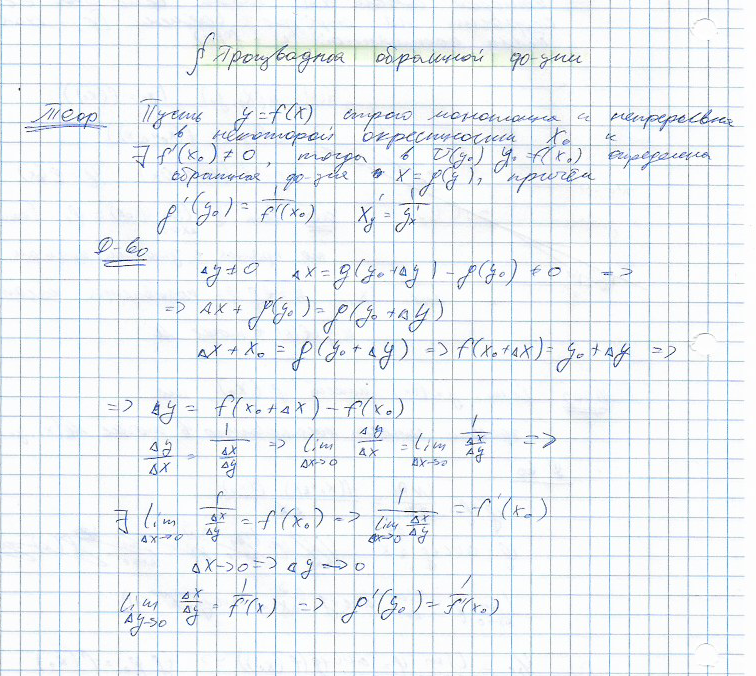 ∮ Производная обратной ф-ции
Теор Пусть y = f(x) строго монотонна и непрерывна
в некоторой окрестности x₀ и
∃ f'(x₀) ≠ 0, тогда в U(y₀) y₀ = f(x₀) определена
обратная ф-ция x = g(y), причём
g'(y₀) = 1/f'(x₀) x'y = 1/y'x
Д-во
Δy ≠ 0 Δx = g(y₀+Δy) - g(y₀) ≠ 0 =>
=> Δx + g(y₀) = g(y₀+Δy)
Δx + x₀ = g(y₀+Δy) => f(x₀+Δx) = y₀+Δy =>
=> Δy = f(x₀+Δx) - f(x₀)
Δy/Δx = 1/(Δx/Δy) => lim Δx→0 Δy/Δx = lim Δx→0 1/(Δx/Δy) =>
∃ lim Δx→0 1/(Δx/Δy) = f'(x₀) => 1/(lim Δx→0 Δx/Δy) = f'(x₀)
Δx→0 => Δy→0
lim Δy→0 Δx/Δy = 1/f'(x) => g'(y₀) = 1/f'(x₀)